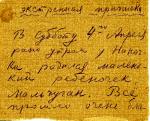 экстренная приписка
В Субботу 4го Апреля
рано утром у
родился малень-
кий ребеночек
Мальчуган. Всё
прошло очень бла